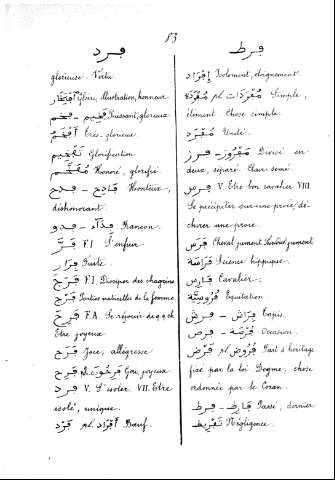 83
فرد
glorieuse. Vertu
اِفْتِخَار Gloire, illustration, honneur
فَخِيم - فخم Puissant, glorieux
أَفْخَم Très-glorieux
تَفْخِيم Glorification
مُفَخَّم Honoré, glorifié
فَادِح - فدح Honteux,
déshonorant.
فِدَاء - فدو Rançon
فَرَّ F.I. S'enfuir
فِرَار Fuite
فَرَجَ F.I. Dissiper des chagrins
فَرْج Parties naturelles de la femme
فَرِحَ F.A. Se réjouir de q.ch
Etre joyeux
فَرَح Joie, allégresse
فَرِح Gai, joyeux
فرد V. S'isoler. VII. Etre
isolé, unique.
فَرْد pl. أَفْرَاد Bœuf
فرط
إِفْرَاد Isolement, éloignement
مُفْرَدَة pl. مُفْرَدَات Simple,
élément. Chose simple.
مُفْرَد Unité.
مَفْرُوز - فرز Divisé en
deux, séparé. Clair-semé
فرس V. Etre bon cavalier VIII
Se précipiter sur une proie, dé-
chirer une proie.
فَرَس Cheval, jument
فَرَاسَة Science hippique.
فَارِس Cavalier,
فُرُوسِيَّة Equitation
فِرَاش - فرش Tapis
فُرْصَة - فرص Occasion.
فَرْض pl. فُرُوض Part d'héritage
fixé par la loi. Dogme, chose
ordonnée par le Coran.
فَارِط - فرط Passé, dernier
تَفْرِيط Négligence.